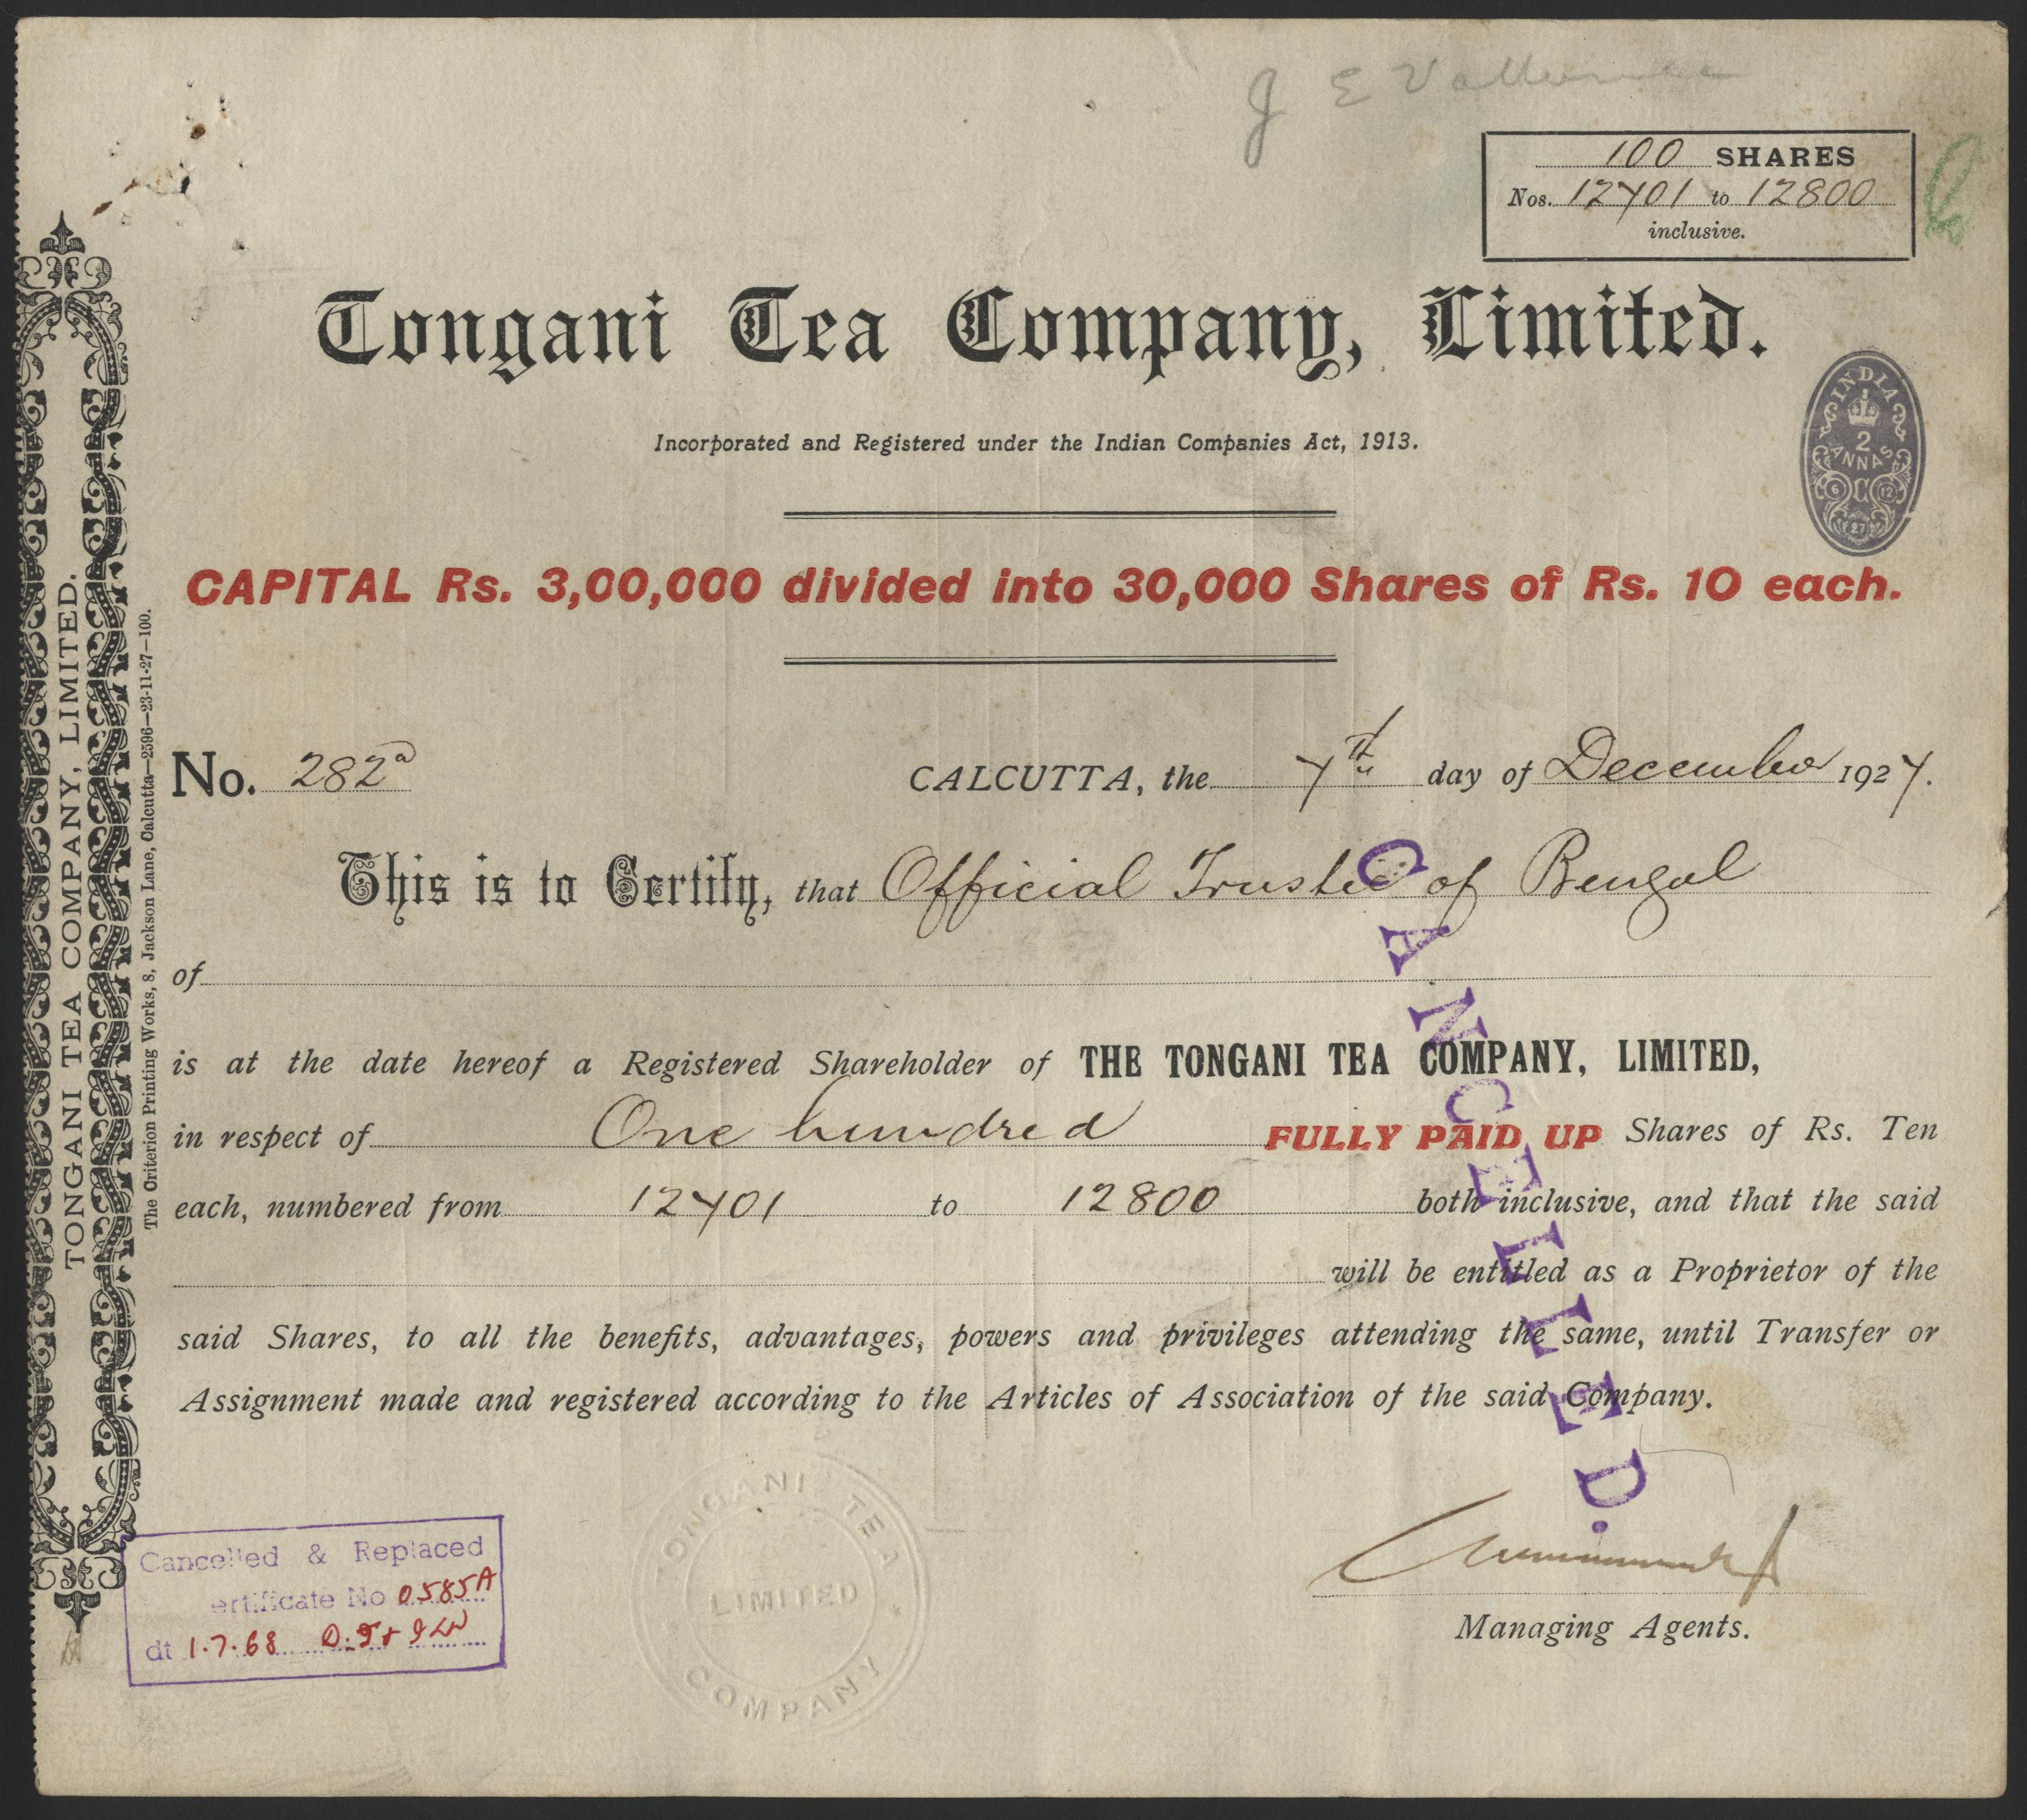 100 SHARES
Nos. 12701 to 12800
inclusive.
Tongani Tea Company, Limited.
INDIA
2
ANNAS
6 C 12
27
Incorporated and Registered under the Indian Companies Act, 1913.
CAPITAL Rs. 3,00,000 divided into 30,000 Shares of Rs. 10 each.
No. 282a
CALCUTTA, the 7th day of December 1927.
This is to Certify, that Official Trustee of Bengal
of
is at the date hereof a Registered Shareholder of THE TONGANI TEA COMPANY, LIMITED,
in respect of One hundred FULLY PAID UP Shares of Rs. Ten
each, numbered from 12701 to 12800 both inclusive, and that the said
will be entitled as a Proprietor of the
said Shares, to all the benefits, advantages, powers and privileges attending the same, until Transfer or
Assignment made and registered according to the Articles of Association of the said Company.
CANCELLED.
Managing Agents.
TONGANI TEA
LIMITED
COMPANY
Cancelled & Replaced
ertificate No 0585A
dt 1.7.68
TONGANI TEA COMPANY, LIMITED.
The Criterion Printing Works, 8, Jackson Lane, Calcutta—2596—23-11-27—100.